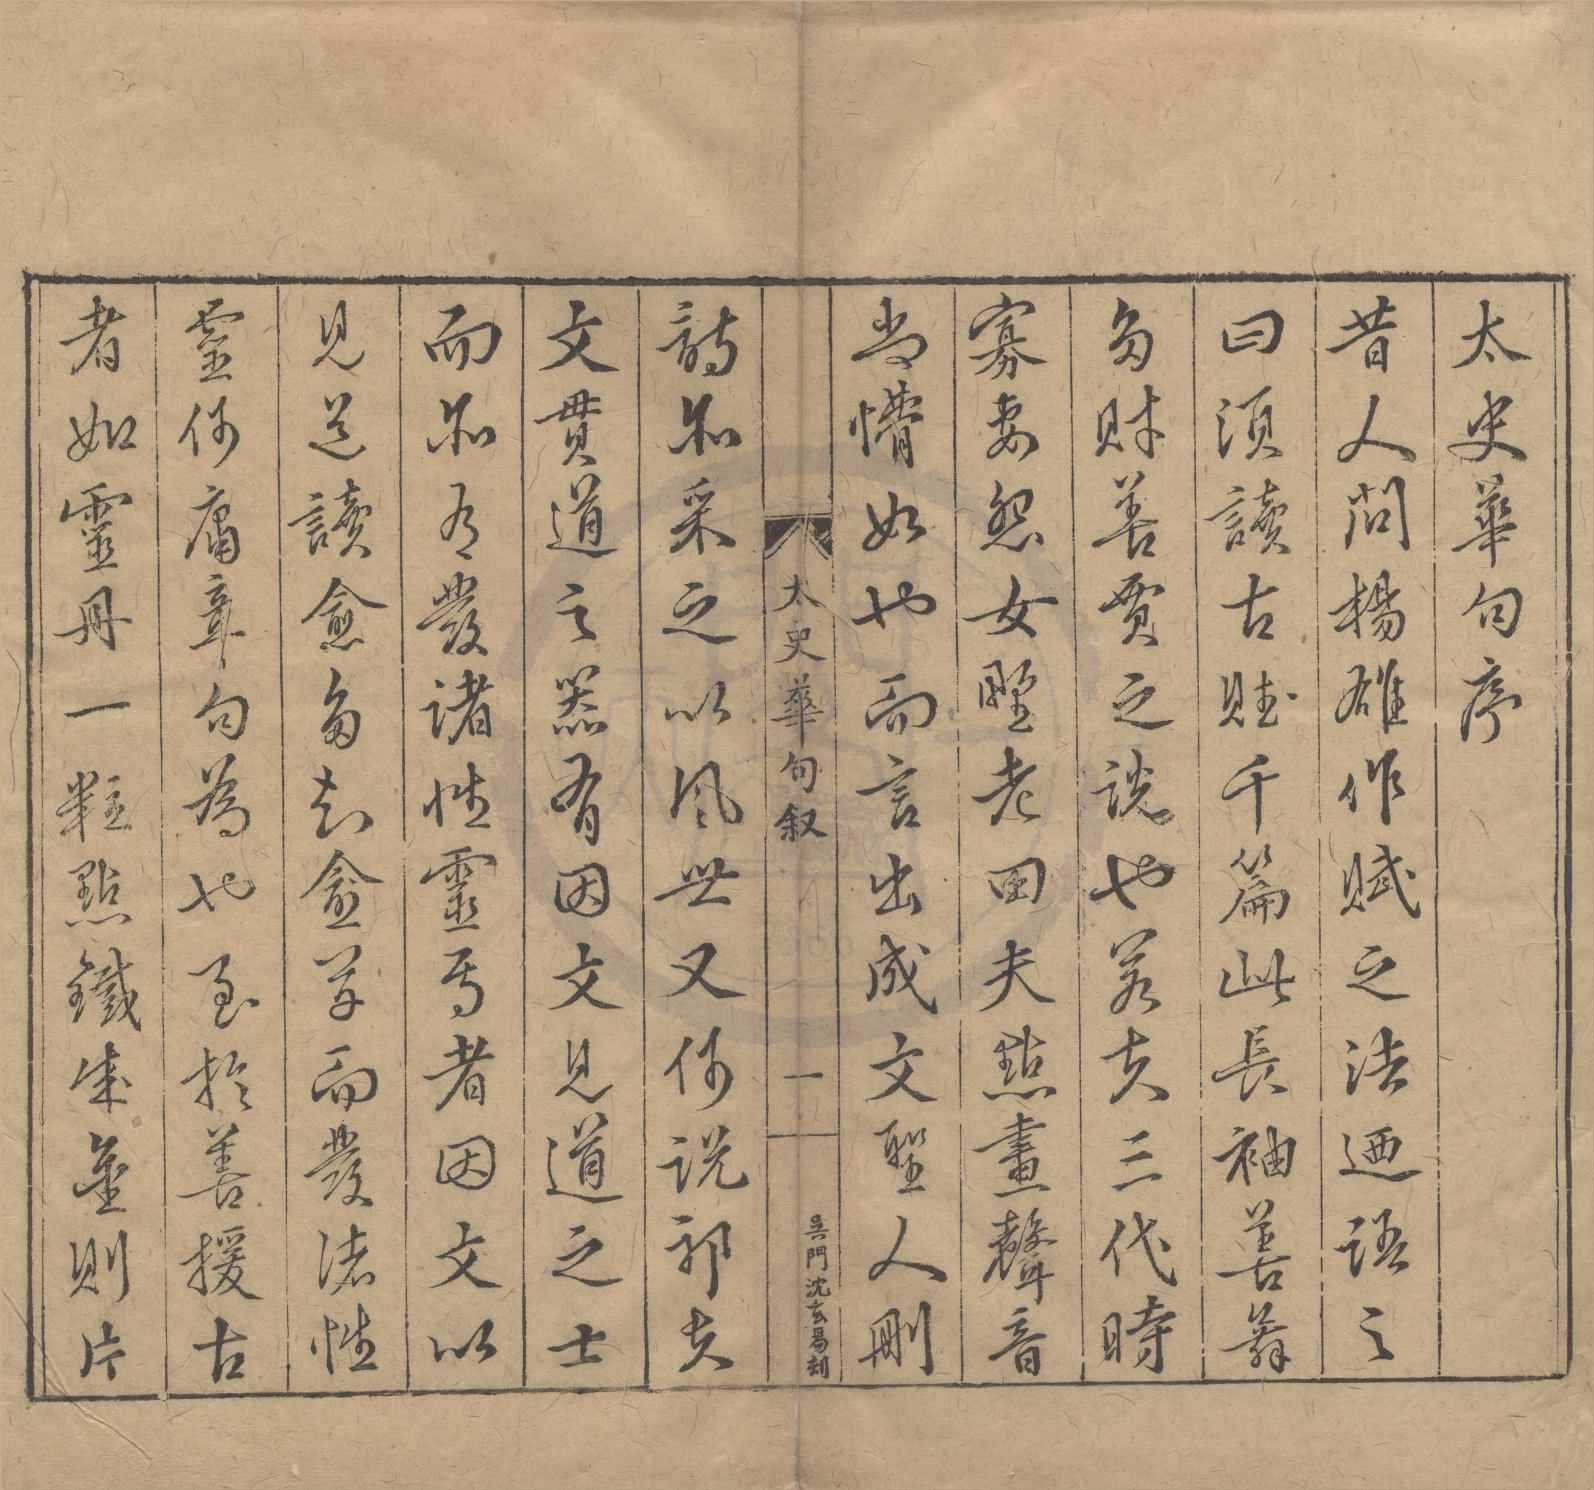 太史華句序
昔人問楊雄作賦之法迺語之
曰須讀古賦千篇此長袖善舞
多財善賈之說也若夫三代時
寡妻怨女野老田夫點畫聲音
尚懵如也而言出成文聖人刪
太史華句叙
一
吳門沈玄易刻
詩亦采之以風世又何說耶夫
文貫道之器有因文見道之士
而亦有發諸性靈焉者因文以
見道讀愈多愈而發諸性
靈何庸章句為也至於善援古
者如靈丹一粒點鐵成金則片